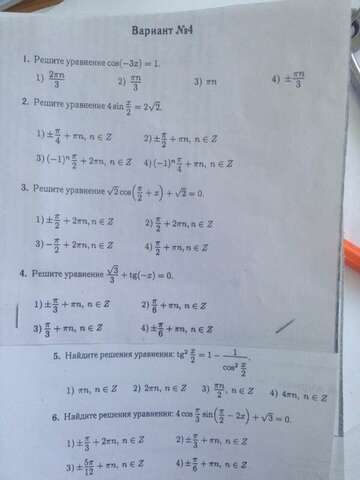 Вариант №4
1. Решите уравнение cos(−3x) = 1.
1) 2πn/3 2) πn/3 3) πn 4) ±πn/3
2. Решите уравнение 4 sin x/2 = 2√2.
1) ±π/4 + πn, n ∈ Z 2) ±π/2 + πn, n ∈ Z
3) (−1)ⁿ π/2 + 2πn, n ∈ Z 4) (−1)ⁿ π/4 + πn, n ∈ Z
3. Решите уравнение √2 cos(π/2 + x) + √2 = 0.
1) ±π/2 + 2πn, n ∈ Z 2) π/2 + 2πn, n ∈ Z
3) −π/2 + 2πn, n ∈ Z 4) π/2 + πn, n ∈ Z
4. Решите уравнение √3/3 + tg(−x) = 0.
1) ±π/3 + πn, n ∈ Z 2) π/6 + πn, n ∈ Z
3) π/3 + πn, n ∈ Z 4) ±π/6 + πn, n ∈ Z
5. Найдите решения уравнения: tg² x/2 = 1 − 1/cos² x/2.
1) πn, n ∈ Z 2) 2πn, n ∈ Z 3) πn/2, n ∈ Z 4) 4πn, n ∈ Z
6. Найдите решения уравнения: 4 cos π/3 sin(π/2 − 2x) + √3 = 0.
1) ±π/3 + 2πn, n ∈ Z 2) ±π/3 + πn, n ∈ Z
3) ±5π/12 + πn, n ∈ Z 4) ±π/6 + πn, n ∈ Z